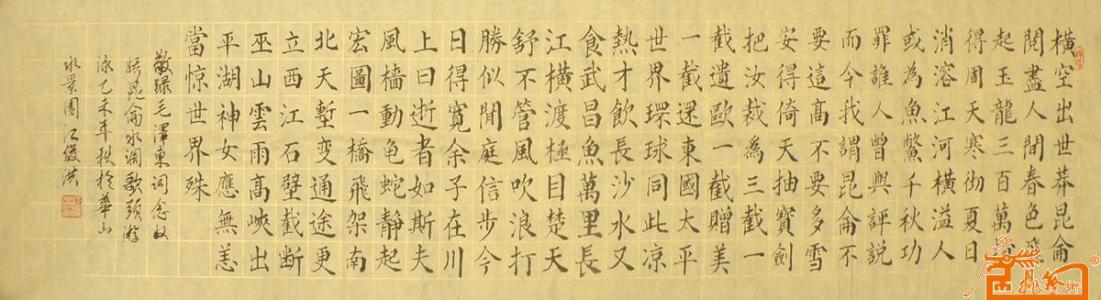 橫空出世莽昆侖
閱盡人間春色飛
起玉龍三百萬
得周天寒彻夏日
消溶江河橫溢人
或為魚鱉千秋功
罪誰人曾與評説
而今我謂昆侖不
要這高不要多雪
安得倚天抽寶劍
把汝裁為三截一
截遺歐一截贈美
一截还東國太平
世界環球同此凉
熱才飲長沙水又
食武昌魚萬里長
江橫渡極目楚天
舒不管風吹浪打
勝似閒庭信步今
日得寬余子在川
上曰逝者如斯夫
風檣動龟蛇靜起
宏圖一橋飛架南
北天塹变通途更
立西江石壁截断
巫山雲雨高峽出
平湖神女應無恙
當惊世界殊
敬録毛澤東詞念奴
娇昆侖水調歌頭游
泳乙未年秋於華山
水景園江俊洪